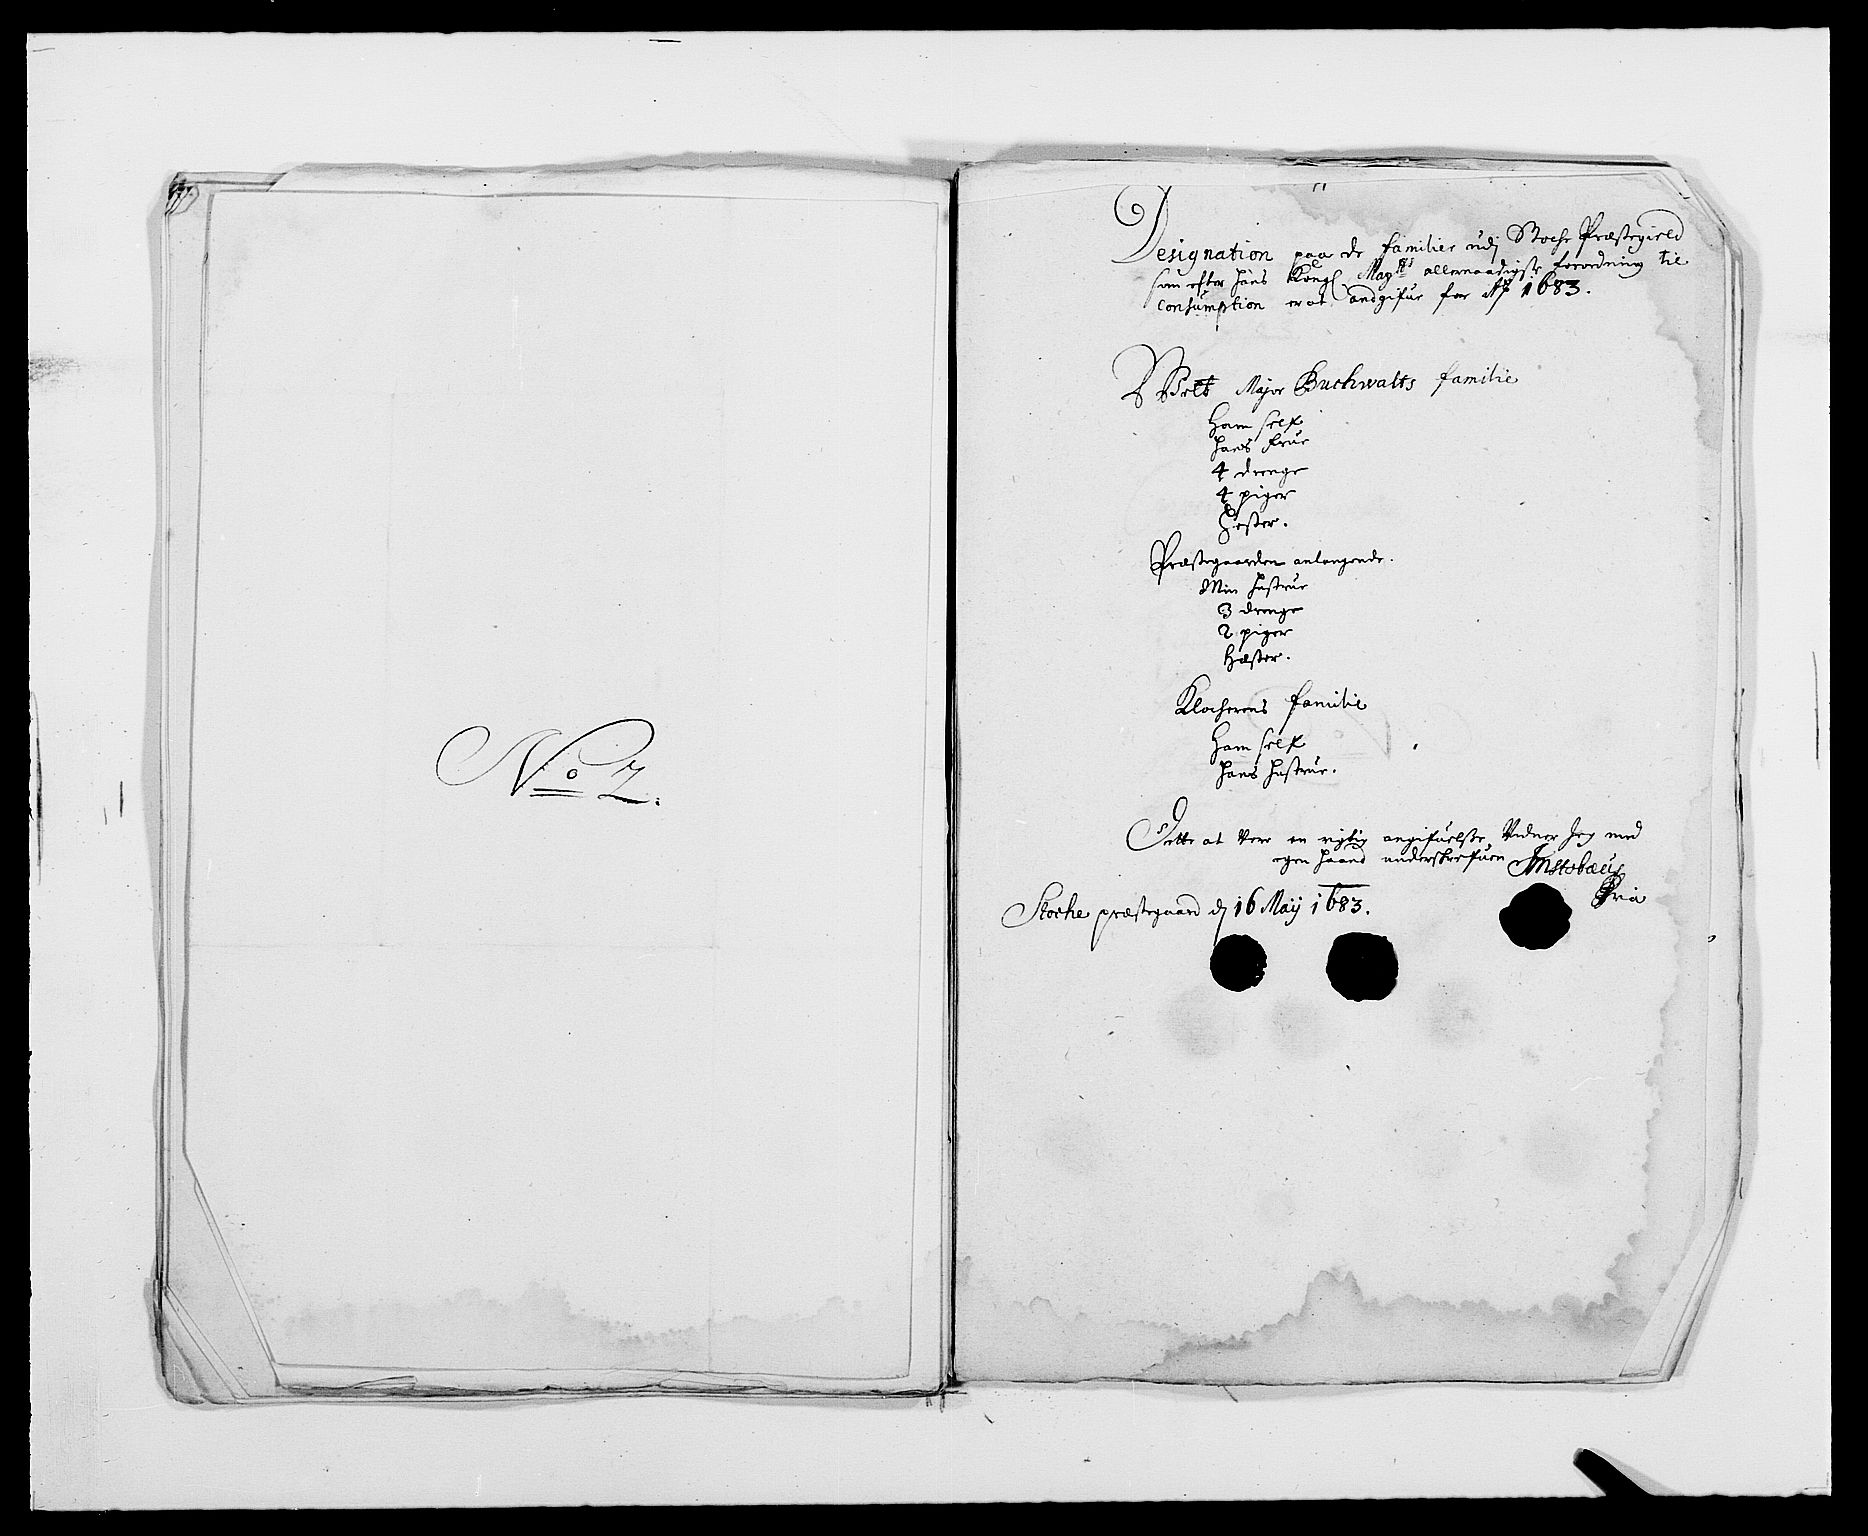 No 2.
Designation paa de familier udj Stoche Præstegield
som efter hans Kongl Mayts allernaadigste forordning til
Consumption er at andgifue for Ao 1683.
Major Buchwalts familie
Ham self
hans frue
4 drenge
4 piger
Hester.
Præstegaarden anlangende.
Min hustrue
3 drenge
2 piger
Hæster.
Klocherens familie
Ham self
hans hustrue.
Dette at Vere en rigtig angifuelse, Vidner Jeg med
egen haand underskrefuen
Stoche præstegaard dj 16 Maij 1683.